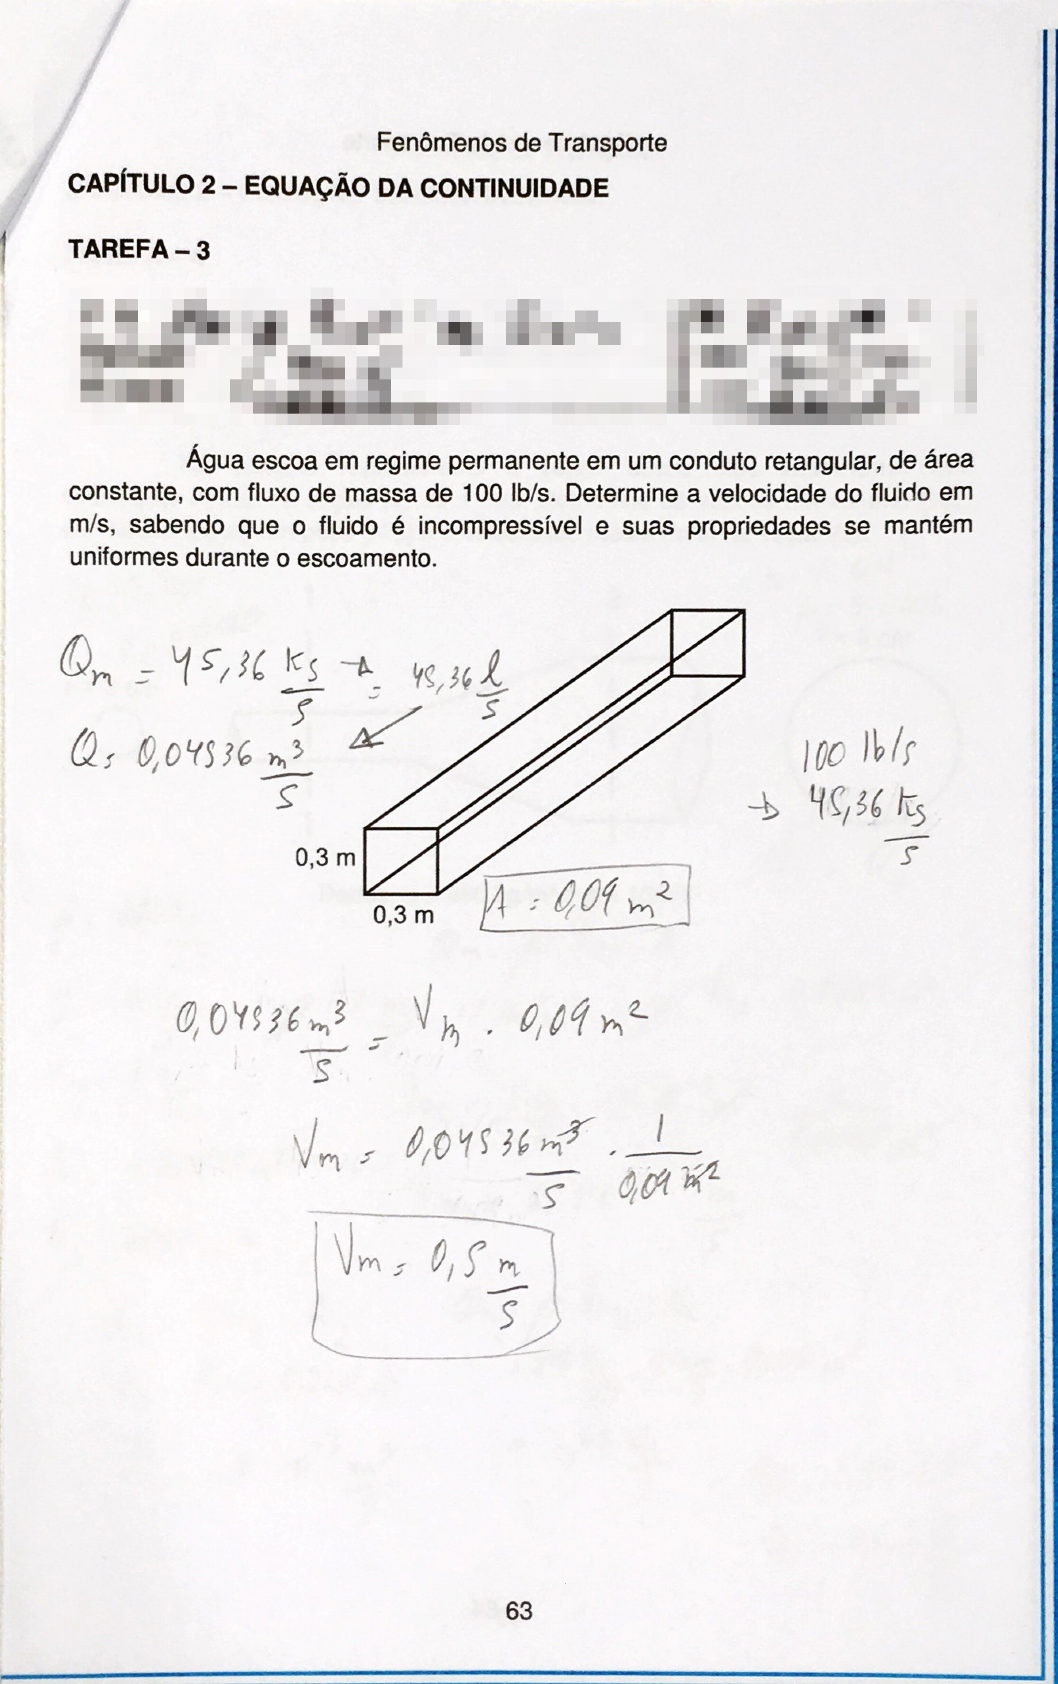 Fenômenos de Transporte
CAPÍTULO 2 – EQUAÇÃO DA CONTINUIDADE
TAREFA – 3
Água escoa em regime permanente em um conduto retangular, de área
constante, com fluxo de massa de 100 lb/s. Determine a velocidade do fluido em
m/s, sabendo que o fluido é incompressível e suas propriedades se mantém
uniformes durante o escoamento.
Qm = 45,36 kg/s → = 45,36 l/s
Q = 0,04536 m³/s
100 lb/s
→ 45,36 kg/s
0,3 m
0,3 m
A = 0,09 m²
0,04536 m³/s = Vm . 0,09 m²
Vm = 0,04536 m³/s . 1/0,09 m²
Vm = 0,5 m/s
63